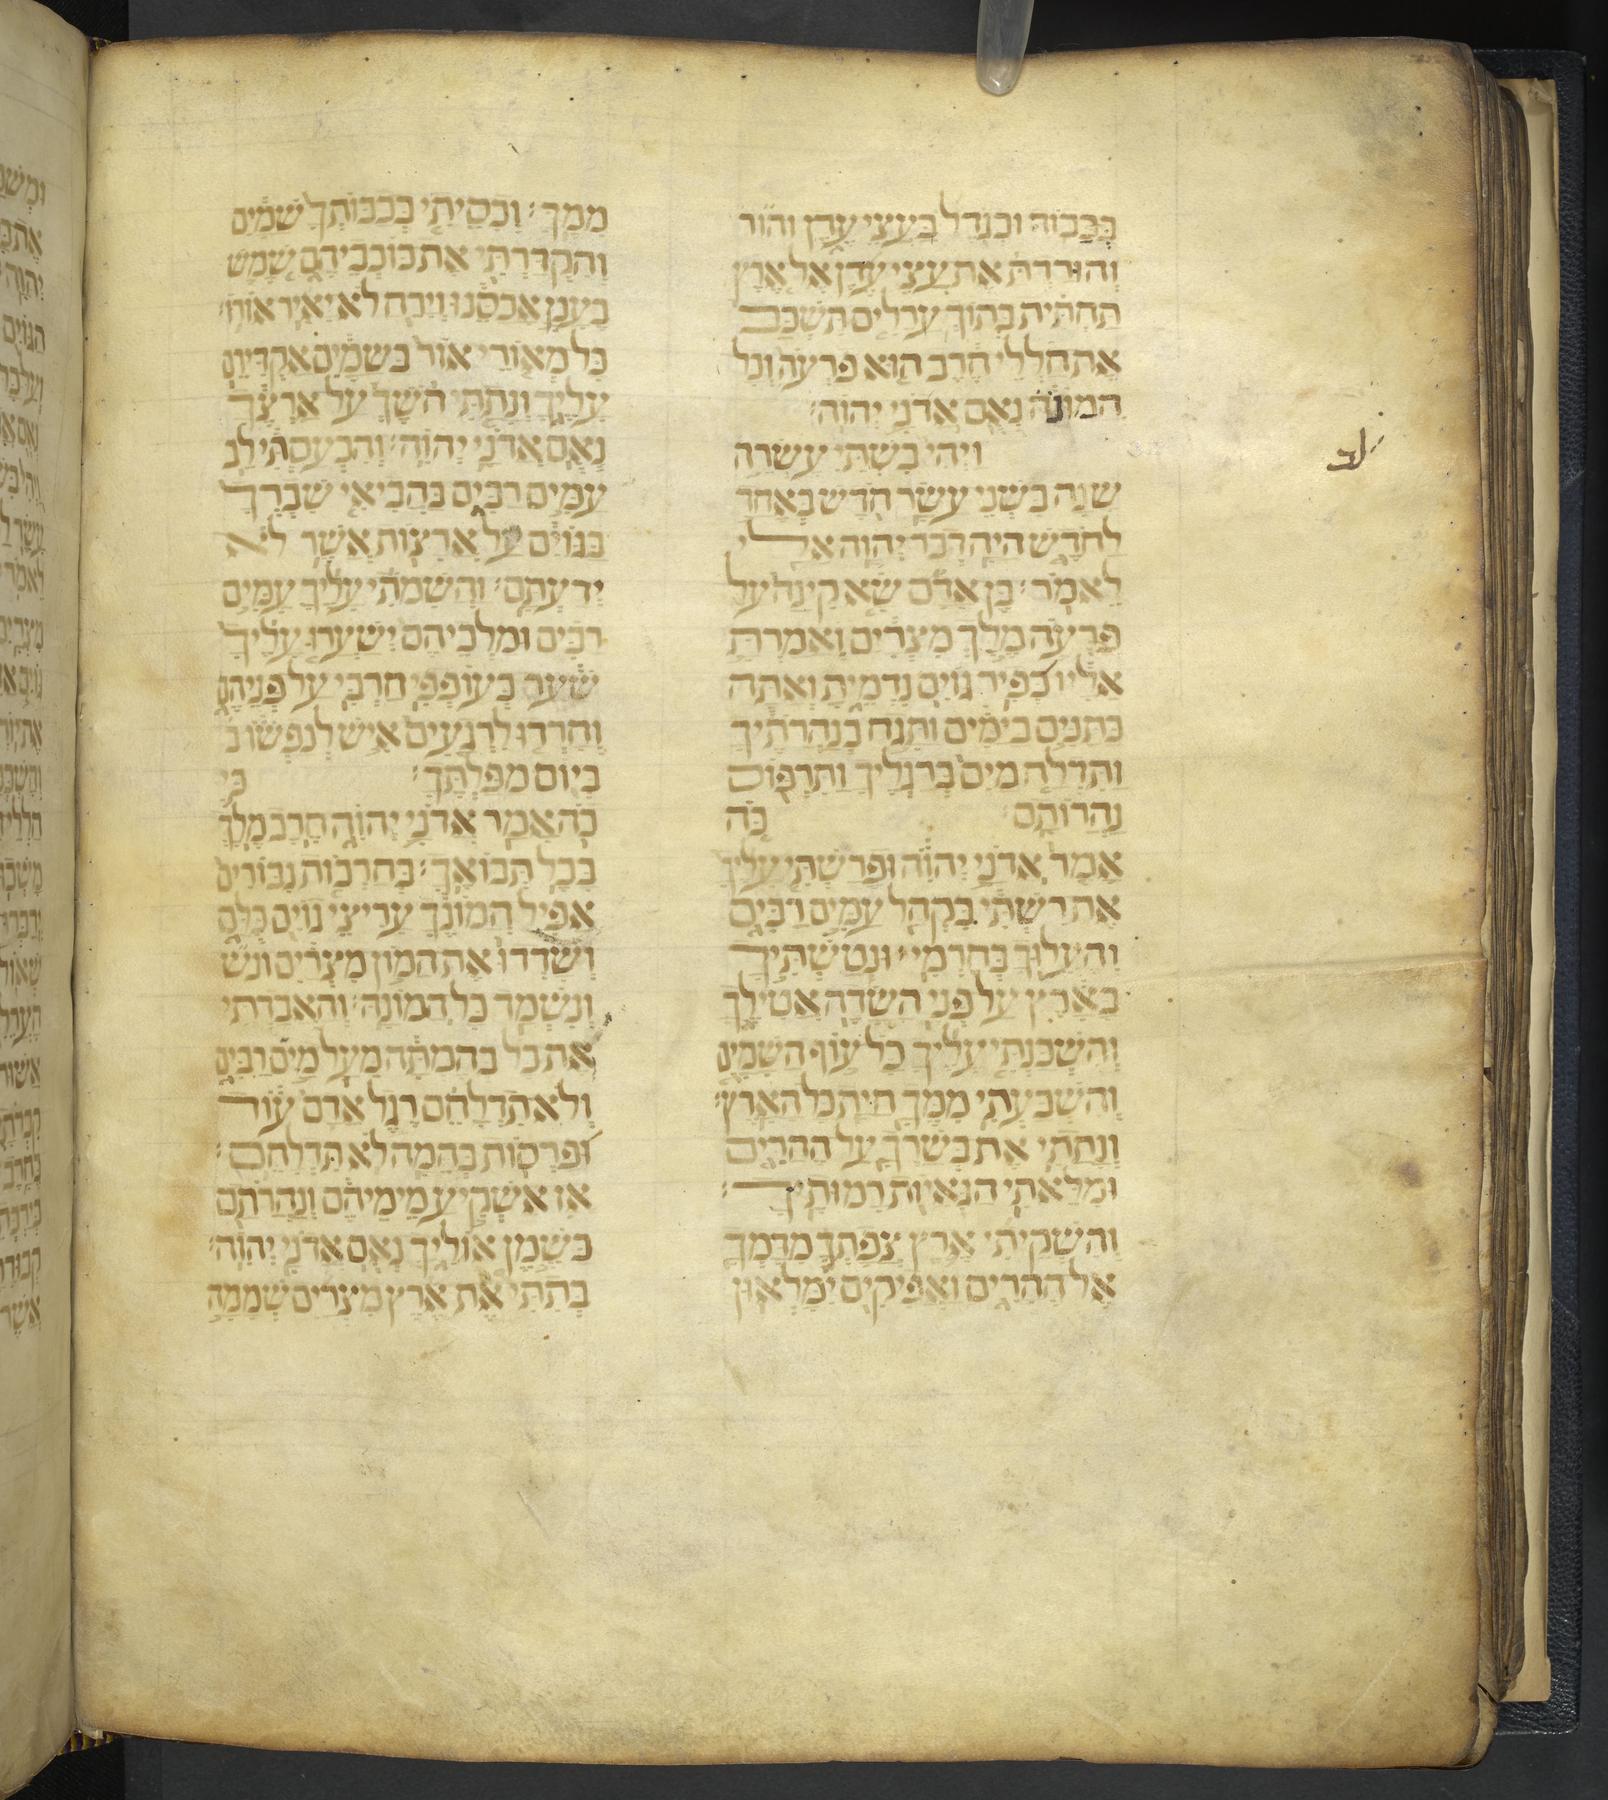 בְּכָבוֹד וּבְגֹדֶל בַּעֲצֵי עֵדֶן וְהוּר
וְהוּרַדְתָּ אֶת עֲצֵי עֵדֶן אֶל אֶרֶץ
תַּחְתִּית בְּתוֹךְ עֲרֵלִים תִּשְׁכַּב
אֶת חַלְלֵי חֶרֶב הוּא פַרְעֹה וְכָל
הֲמוֹנֹה נְאֻם אֲדֹנָי יְהוִה׃
וַיְהִי בִּשְׁתֵּי עֶשְׂרֵה
שָׁנָה בִּשְׁנֵי עָשָׂר חֹדֶשׁ בְּאֶחָד
לַחֹדֶשׁ הָיָה דְבַר יְהוָה אֵלַי
לֵאמֹר׃ בֶּן אָדָם שָׂא קִינָה עַל
פַּרְעֹה מֶלֶךְ מִצְרַיִם וְאָמַרְתָּ
אֵלָיו כְּפִיר גּוֹיִם נִדְמֵיתָ וְאַתָּה
כַּתַּנִּים בַּיַּמִּים וַתָּגַח בְּנַהֲרֹתֶיךָ
וַתִּדְלַח מַיִם בְּרַגְלֶיךָ וַתִּרְפּוֹס
נַהֲרוֹתָם׃ כֹּה
אָמַר אֲדֹנָי יְהוִה וּפָרַשְׂתִּי עָלֶיךָ
אֶת רִשְׁתִּי בִּקְהַל עַמִּים רַבִּים
וְהֶעֱלוּךָ בְּחֶרְמִי׃ וּנְטַשְׁתִּיךָ
בָאָרֶץ עַל פְּנֵי הַשָּׂדֶה אֲטִילֶךָ
וְהִשְׁכַּנְתִּי עָלֶיךָ כָּל עוֹף הַשָּׁמַיִם
וְהִשְׂבַּעְתִּי מִמְּךָ חַיַּת כָּל הָאָרֶץ׃
וְנָתַתִּי אֶת בְּשָׂרְךָ עַל הֶהָרִים
וּמִלֵּאתִי הַגֵּאָיוֹת רָמוּתֶיךָ׃
וְהִשְׁקֵיתִי אֶרֶץ צָפָתְךָ מִדָּמְךָ
אֶל הֶהָרִים וַאֲפִיקִים יִמָּלְאוּן
מִמֶּךָּ׃ וְכִסֵּיתִי בְכַבּוֹתְךָ שָׁמַיִם
וְהִקְדַּרְתִּי אֶת כּוֹכְבֵיהֶם שֶׁמֶשׁ
בֶּעָנָן אֲכַסֶּנּוּ וְיָרֵחַ לֹא יָאִיר אוֹרוֹ׃
כָּל מְאוֹרֵי אוֹר בַּשָּׁמַיִם אַקְדִּירֵם
עָלֶיךָ וְנָתַתִּי חֹשֶׁךְ עַל אַרְצְךָ
נְאֻם אֲדֹנָי יְהוִה׃ וְהִכְעַסְתִּי לֵב
עַמִּים רַבִּים בַּהֲבִיאִי שִׁבְרְךָ
בַּגּוֹיִם עַל אֲרָצוֹת אֲשֶׁר לֹא
יְדַעְתָּם׃ וַהֲשִׁמּוֹתִי עָלֶיךָ עַמִּים
רַבִּים וּמַלְכֵיהֶם יִשְׂעֲרוּ עָלֶיךָ
שַׂעַר בְּעוֹפְפִי חַרְבִּי עַל פְּנֵיהֶם
וְחָרְדוּ לִרְגָעִים אִישׁ לְנַפְשׁוֹ ב
בְּיוֹם מַפַּלְתֶּךָ׃ כִּי
כֹּה אָמַר אֲדֹנָי יְהוִה חֶרֶב מֶלֶךְ
בָּבֶל תְּבוֹאֶךָ׃ בְּחַרְבוֹת גִּבּוֹרִים
אַפִּיל הֲמוֹנֶךָ עָרִיצֵי גוֹיִם כֻּלָּם
וְשָׁדְדוּ אֶת הֲמוֹן מִצְרַיִם וְנִשׁ
וְנִשְׁמַד כָּל הֲמוֹנָהּ׃ וְהַאֲבַדְתִּי
אֶת כָּל בְּהֶמְתָּהּ מֵעַל מַיִם רַבִּים
וְלֹא תִדְלָחֵם רֶגֶל אָדָם עוֹד
וּפַרְסוֹת בְּהֵמָה לֹא תִדְלָחֵם׃
אָז אַשְׁקִיעַ מֵימֵיהֶם וְנַהֲרֹתָם
כַּשֶּׁמֶן אוֹלִיךְ נְאֻם אֲדֹנָי יְהוִה׃
בְּתִתִּי אֶת אֶרֶץ מִצְרַיִם שְׁמָמָה
לב